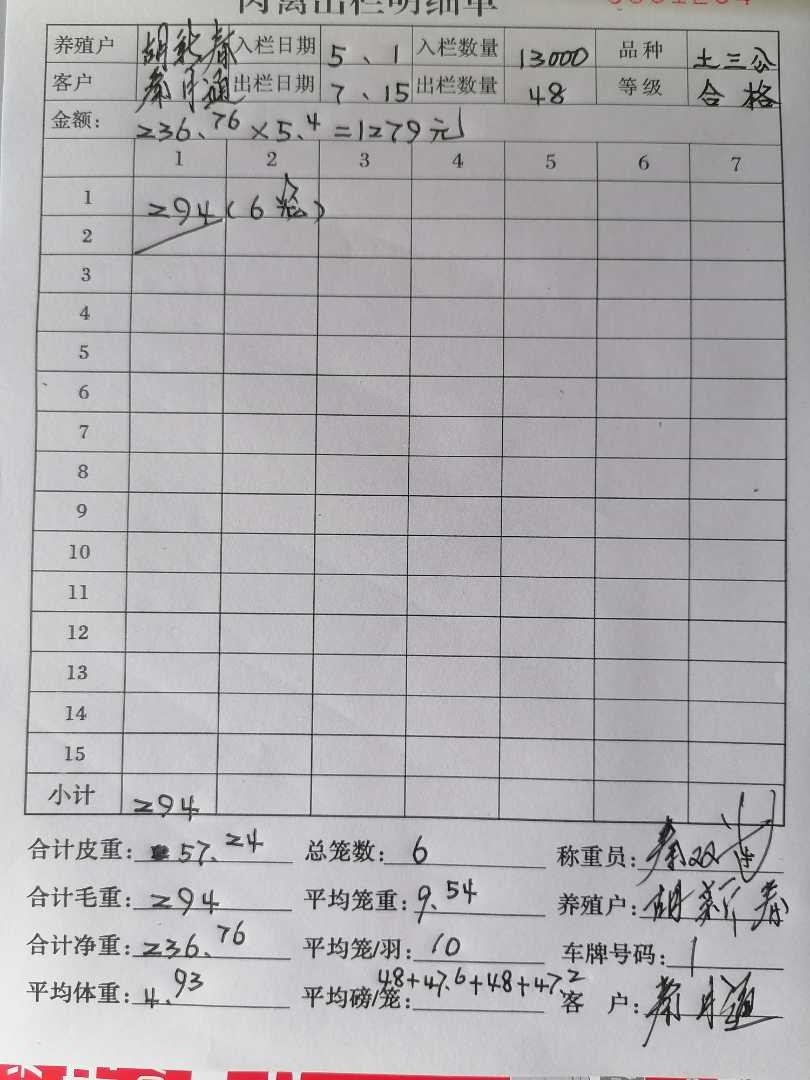 肉禽出栏明细单
养殖户 胡新春 入栏日期 5、1 入栏数量 13000 品种 土三公
客户 秦月通 出栏日期 7、15 出栏数量 48 等级 合格
金额: 236.76×5.4=1279元
1 2 3 4 5 6 7
1 294(6笼)
2
3
4
5
6
7
8
9
10
11
12
13
14
15
小计 294
合计皮重: 57.24 总笼数: 6 称重员: 秦双
合计毛重: 294 平均笼重: 9.54 养殖户: 胡新春
合计净重: 236.76 平均笼/羽: 10 车牌号码: 1
平均体重: 4.93 平均磅/笼: 48+47.6+48+47.2 客 户: 秦月通